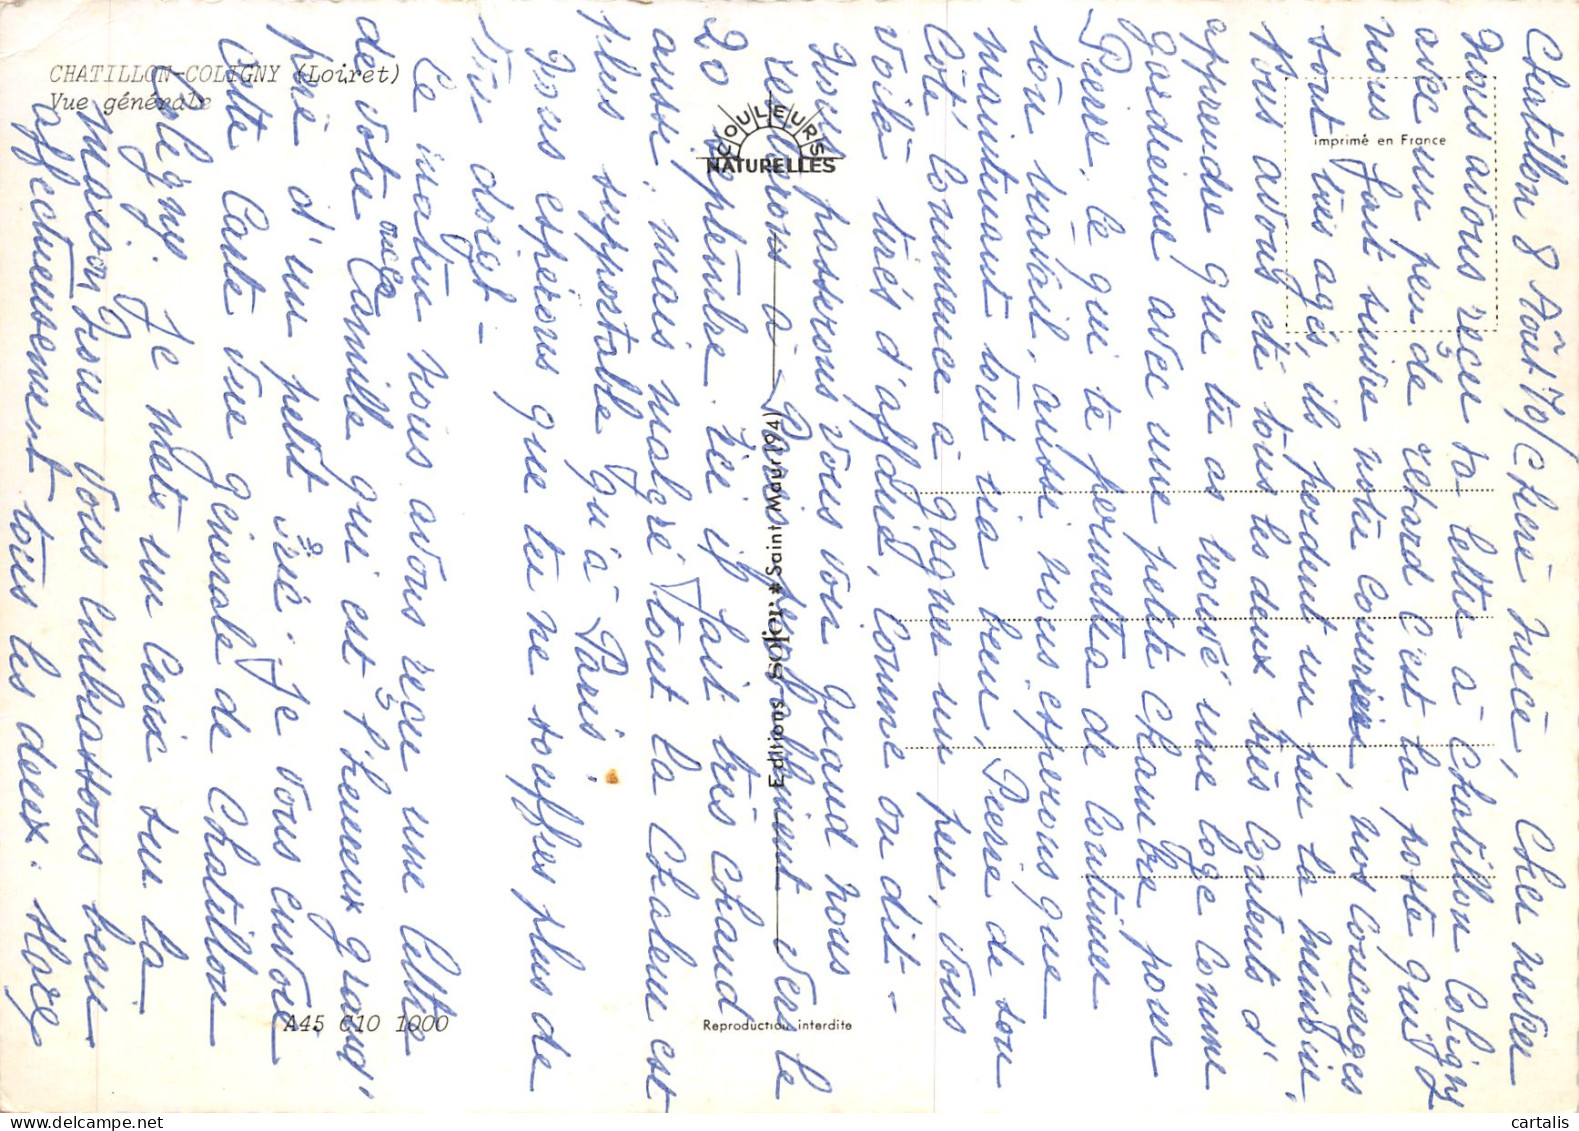 CHATILLON-COLIGNY (Loiret)
Vue générale
COULEURS
NATURELLES
imprimé en France
Editions SOFER * Saint Maur (94)
A45 C10 1000
Reproduction interdite
Chatillon 8 Août 70/ Chère nièce, Cher neveu
Nous avons reçu ta lettre à Chatillon Coligny
avec un peu de retard c'est la poste qui
nous fait suivre notre courrier, nos concierges
sont très agés, ils perdent un peu la mémoire,
Nous avons été tous les deux très contents d'
apprendre que tu as trouvé une loge comme
gardienne avec une petite chambre pour
Pierre, ce qui te permettra de continuer
ton travail, aussi nous espérons que
maintenant tout ira bien, Pierre de son
côté commence à gagner un peu, vous
voilà tirés d'affaire, comme on dit -
Nous passerons vous voir quand nous
rentrerons à Paris probablement vers le
20 septembre. Ici il fait très chaud
aussi, mais malgré tout la chaleur est
plus supportable qu'à Paris.
Nous espérons que tu ne souffres plus de
ton doigt -
Ce matin nous avons reçu une lettre
de votre oncle Camille qui est l'heureux grand'
père d'un petit Eric. Je vous envoie
cette carte vue générale de Chatillon
Coligny. Je mets un croix sur la
maison, Nous vous embrassons bien
affectueusement tous les deux.
cartalis.com